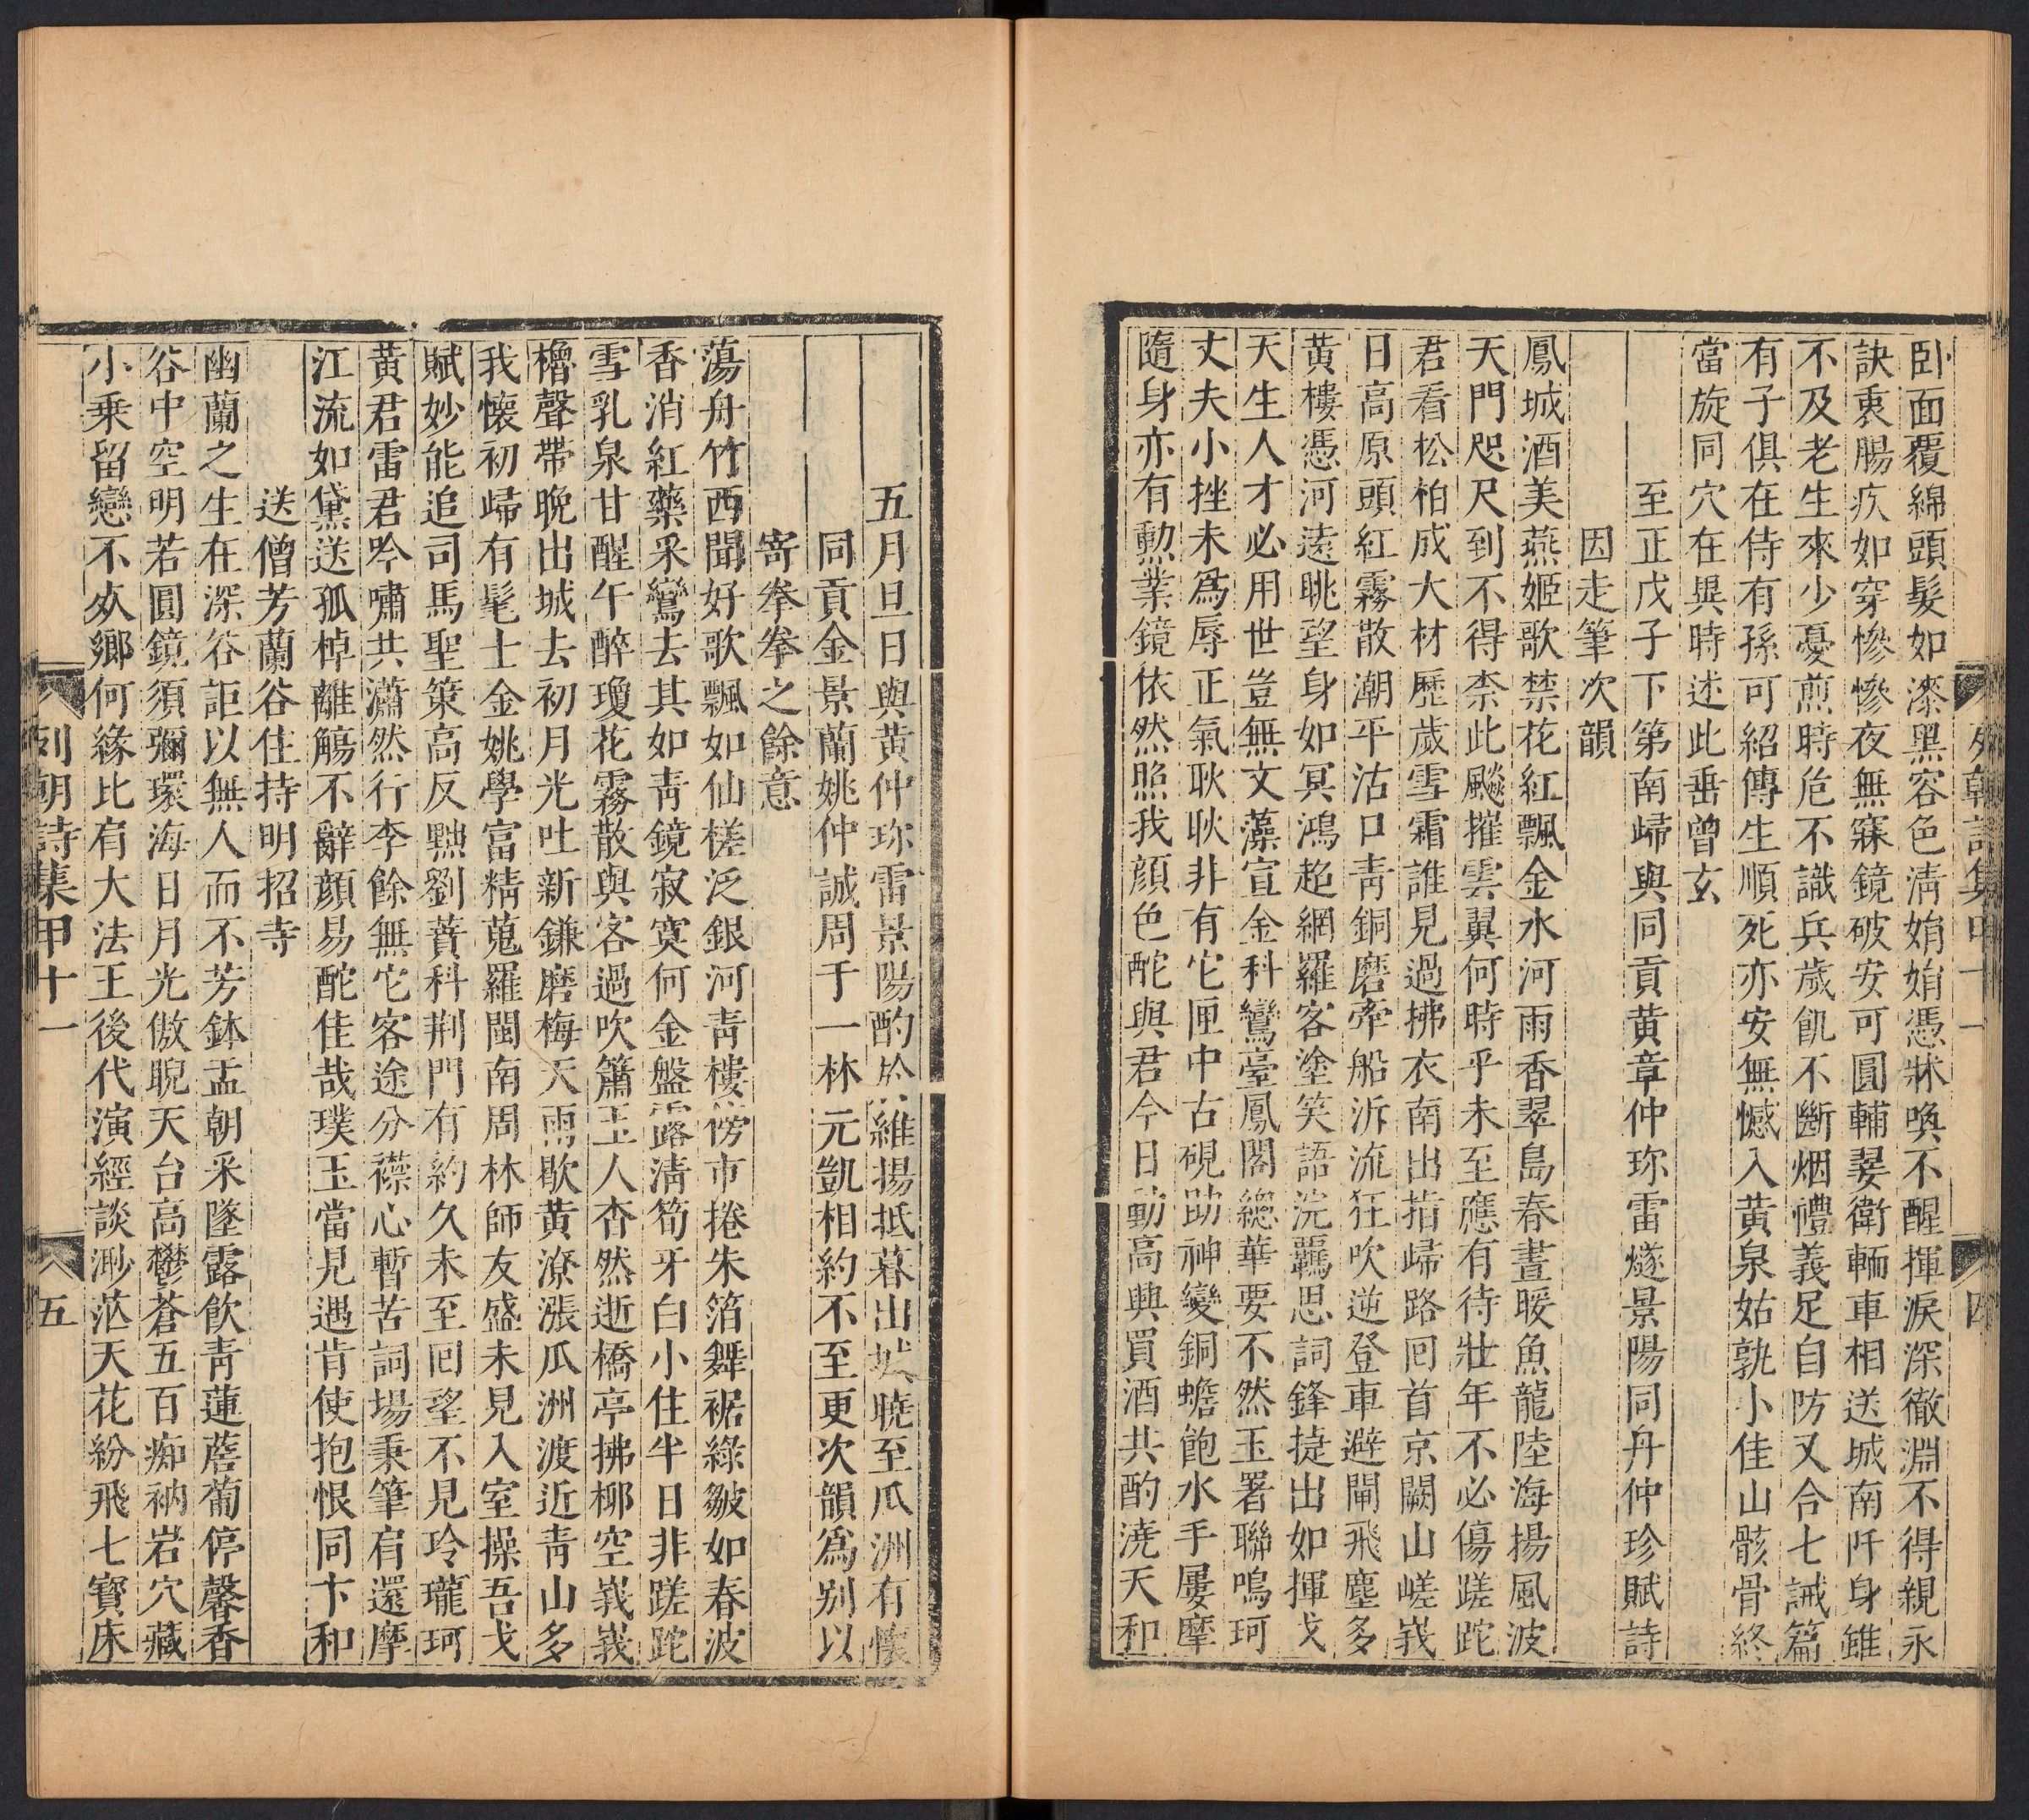 臥面覆綿頭髮如漆黑容色淸娟娟憑牀喚不醒揮淚深徹淵不得親永
訣衷腸疚如穿慘慘夜無寐鏡破安可圓輔翣衛輀車相送城南阡身雖
不及老生來少憂煎時危不識兵歲飢不斷烟禮義足自防又合七誡篇
有子俱在侍有孫可紹傳生順死亦安無憾入黃泉姑孰小佳山骸骨終
當旋同穴在異時述此垂曾玄
至正戊子下第南歸與同貢黃章仲珍雷燧景陽同舟仲珍賦詩
因走筆次韻
鳳城酒美燕姬歌禁花紅飄金水河雨香翠島春晝暖魚龍陸海揚風波
天門咫尺到不得柰此飈摧雲翼何時乎未至應有待壯年不必傷蹉跎
君看松柏成大材歷歲雪霜誰見過拂衣南出指歸路囘首京闕山嵯峩
日高原頭紅霧散潮平沽口靑銅磨牽船泝流狂吹逆登車避閘飛塵多
黃樓憑河遠眺望身如冥鴻超網羅客塗笑語浣羈思詞鋒捷出如揮戈
天生人才必用世豈無文藻宣金科鸞臺鳳閣總華要不然玉署聯鳴珂
丈夫小挫未爲辱正氣耿耿非有它匣中古硯助神變銅蟾飽水手屢摩
隨身亦有勲業鏡依然照我顏色酡與君今日動高興買酒共酌澆天和
列朝詩集甲十一
四
五月旦日與黃仲珎雷景陽酌於維揚抵暮出城曉至瓜洲有懷
同貢金景蘭姚仲誠周于一林元凱相約不至更次韻爲别以
寄拳拳之餘意
蕩舟竹西聞好歌飄如仙槎泛銀河靑樓傍市捲朱箔舞裾綠皺如春波
香消紅藥采鸞去其如靑鏡寂寞何金盤露淸筍牙白小住半日非蹉跎
雪乳泉甘醒午醉瓊花霧散與客過吹簫玉人杳然逝橋亭拂柳空峩峩
櫓聲帶晩出城去初月光吐新鎌磨梅天雨歇黃潦漲瓜洲渡近靑山多
我懷初歸有髦士金姚學富精蒐羅閩南周林師友盛未見入室操吾戈
賦妙能追司馬聖策高反黜劉蕡科荆門有約久未至囘望不見玲瓏珂
黃君雷君吟嘯共瀟然行李餘無它客途分襟心暫苦詞場秉筆肩還摩
江流如黛送孤棹離觴不辭顏易酡佳哉璞玉當見遇肯使抱恨同卞和
送僧芳蘭谷住持明招寺
幽蘭之生在深谷詎以無人而不芳鉢盂朝采墜露飮靑蓮薝蔔停馨香
谷中空明若圓鏡須彌環海日月光傲睨天台高鬱蒼五百痴衲岩穴藏
小乘留戀不夊鄉何緣比有大法王後代演經談渺茫天花紛飛七寶床
列朝詩集甲十一
五